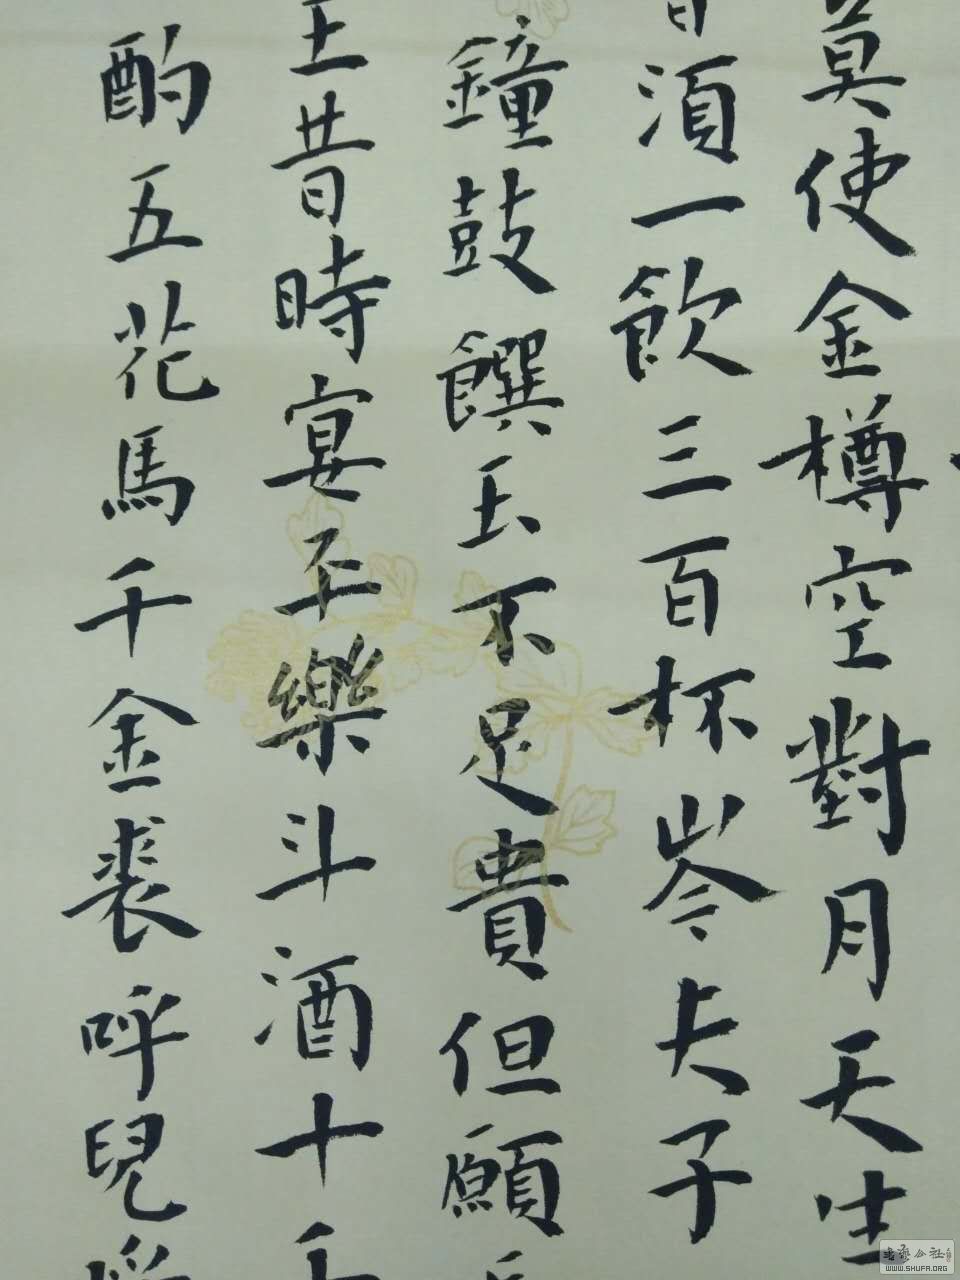 莫使金樽空對月天生
須一飲三百杯岑夫子
鐘鼓饌玉不足貴但願
王昔時宴平樂斗酒十千
酌五花馬千金裘呼兒
WWW.SHUFA.ORG